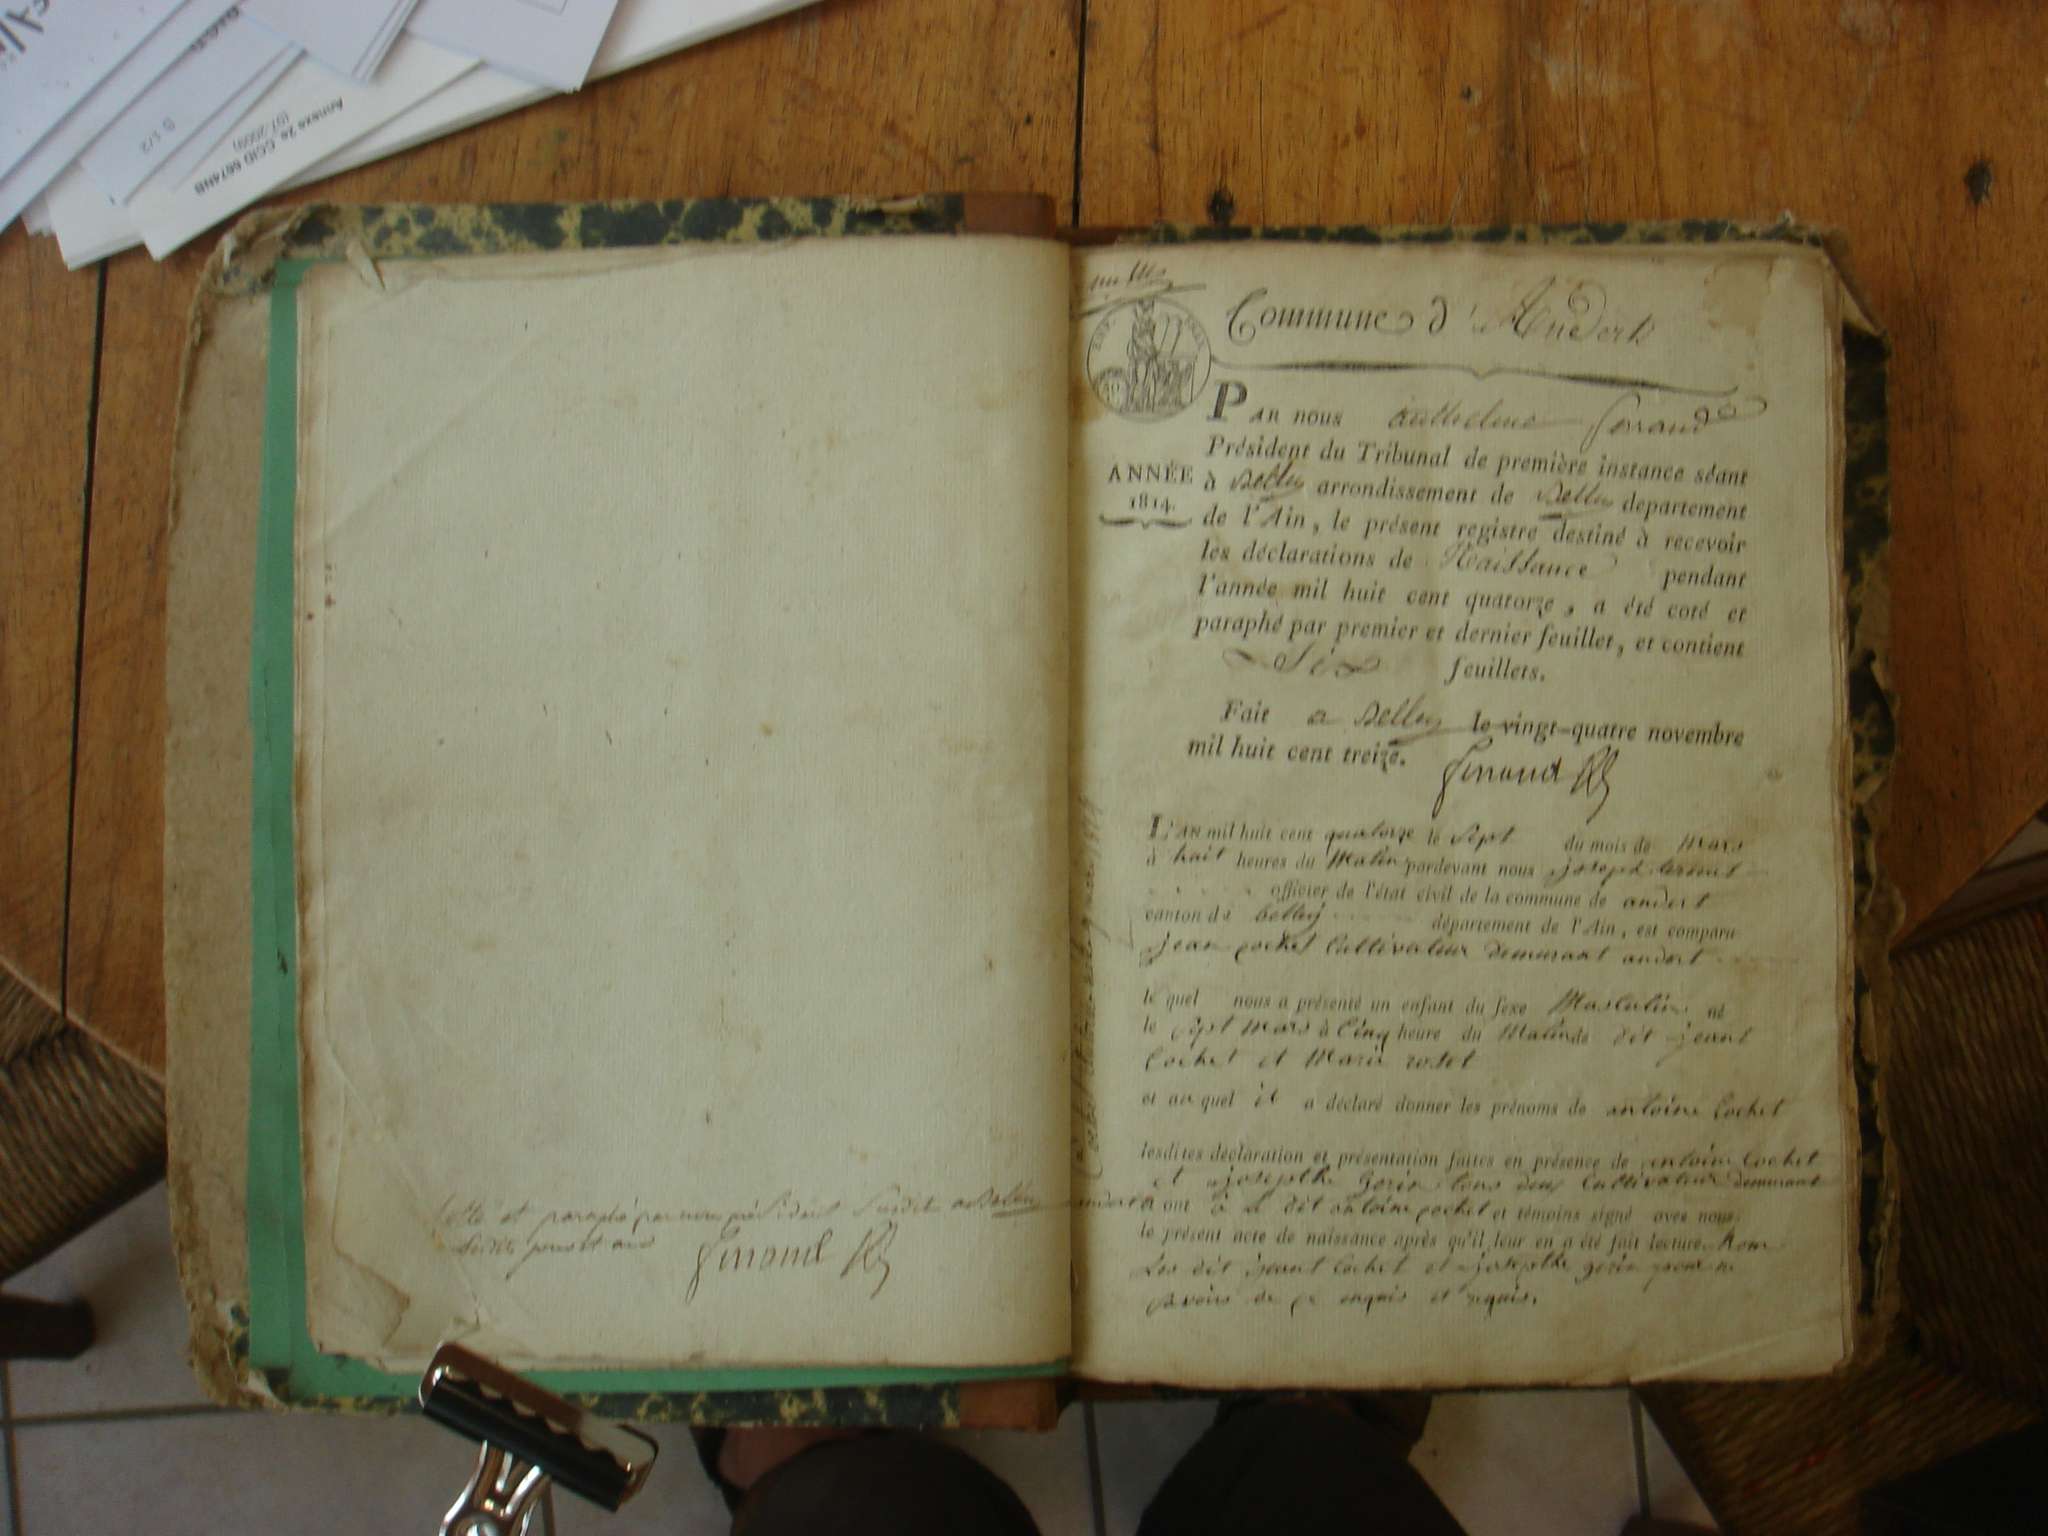 Annexe 2e CCID 6674NB
(07-2009)
S 1/2
Cotté et paraphé par nous président susdit a Belley
susdits jour et an
Girraud
Commune d'Andert
EMP. FRAN.
ANNÉE
1814.
PAR nous anthelme
Président du Tribunal de première instance séant
à Belley arrondissement de Belley departement
de l'Ain, le présent registre destiné à recevoir
les déclarations de Naissance pendant
l'année mil huit cent quatorze, a été coté et
paraphé par premier et dernier feuillet, et contient
Six feuillets.
Fait a Belley le vingt-quatre novembre
mil huit cent treize.
L'AN mil huit cent quatorze le Sept du mois de Mars
à huit heures du Matin pardevant nous joseph
officier de l'état civil de la commune de andert
canton de belley département de l'Ain, est comparu
jean cochet Cultivateur demurant andert
le quel nous a présenté un enfant du sexe Masculin né
le sept mars à Cinq heure du Matin de dit jeant
Cochet et Marie roset
et au quel il a déclaré donner les prénoms de antoine Cochet
lesdites déclaration et présentation faites en présence de antoine Cochet
et josepthe gorin tous deux Cultivateur demurant
andert ont à Le dit antoine cochet et témoins signé avec nous
le présent acte de naissance après qu'il leur en a été fait lecture. Non
Les dit jeant Cochet et josepthe gorin pour ne
savoir de ce enquis et requis.